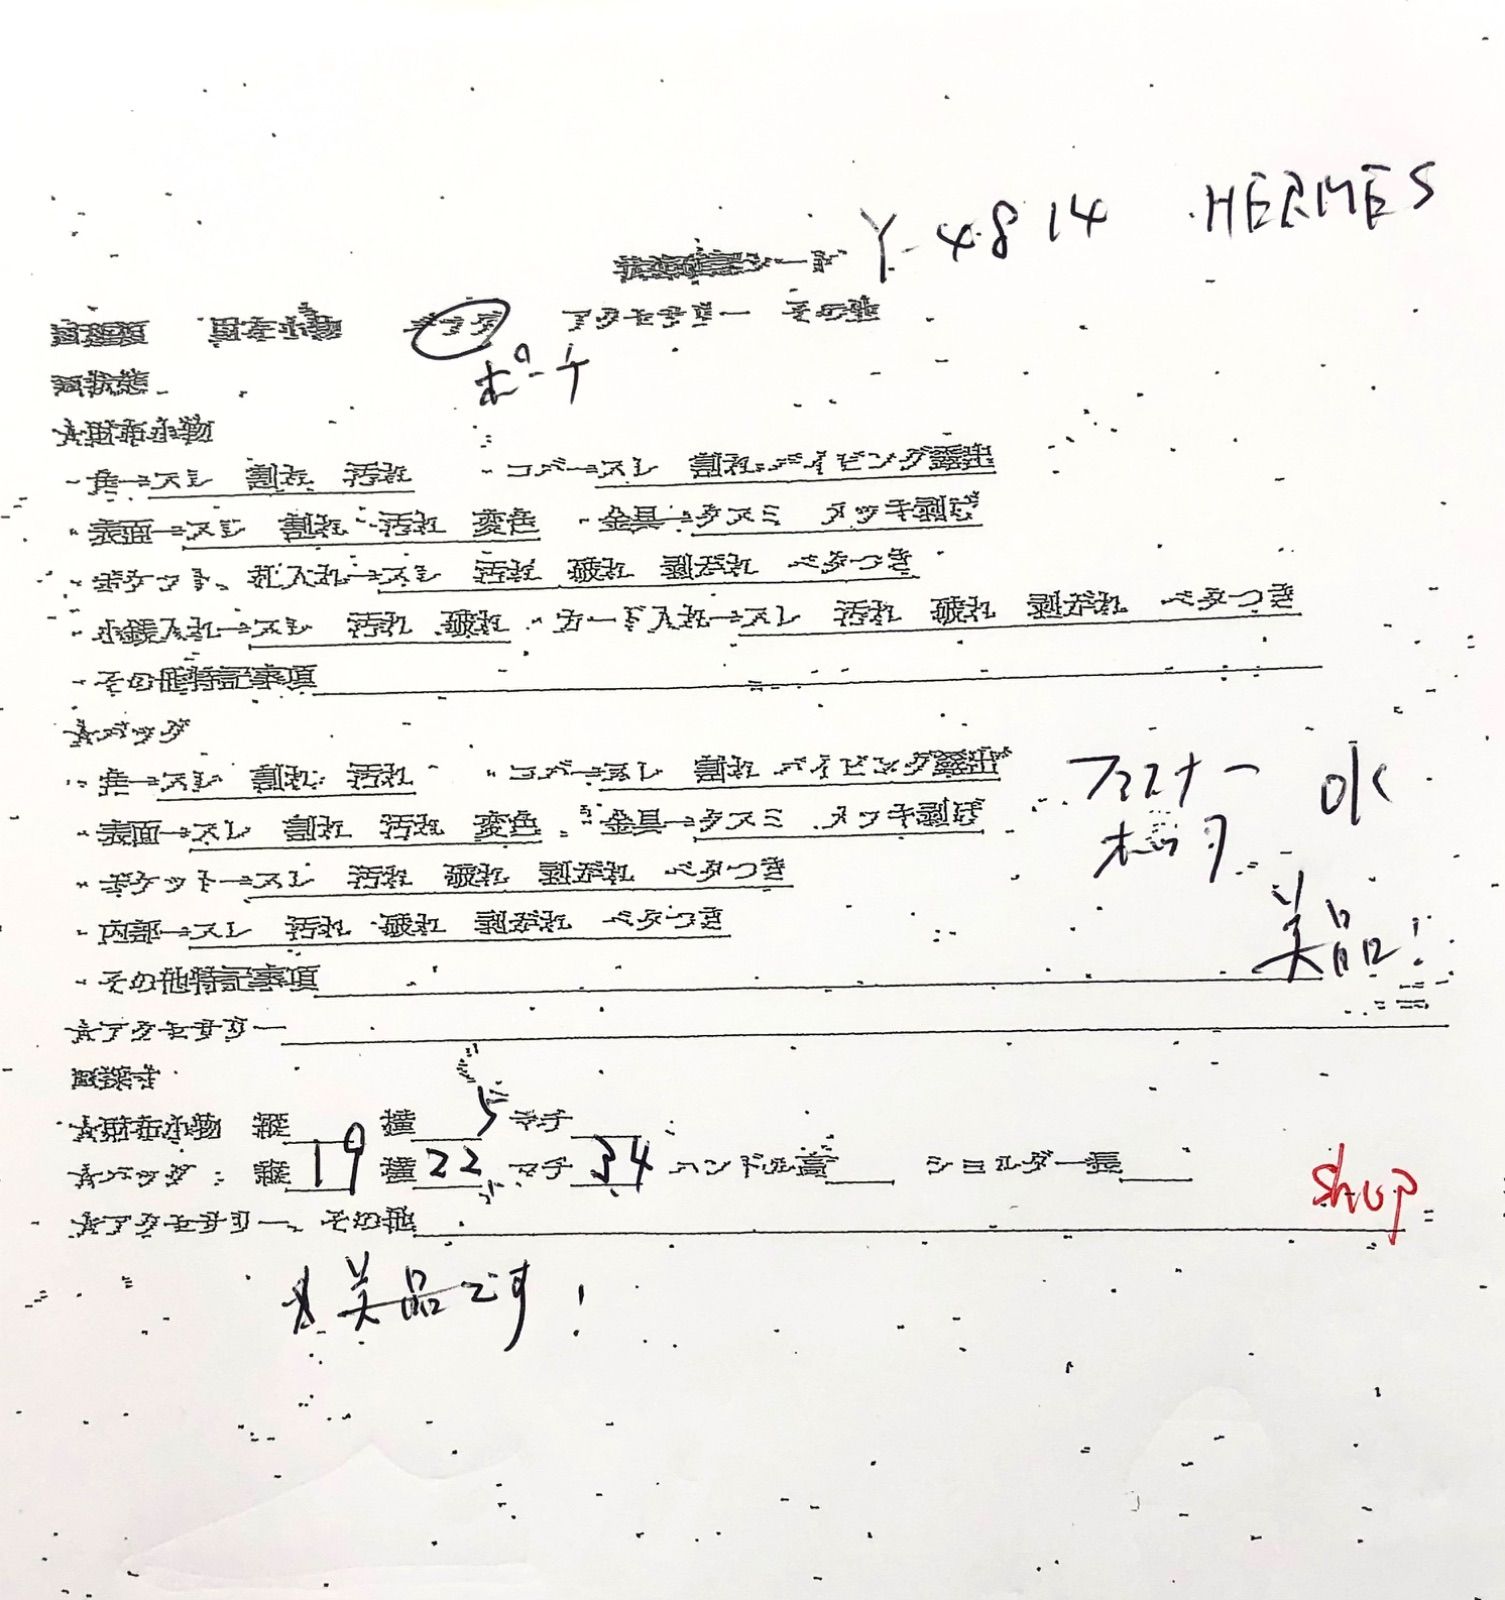 Y-4814 HERMES
シート
財布小物 バッグ アクセサリー その他
状態 ポーチ
☆財布小物
・角→スレ 割れ 汚れ ・コバ→スレ 割れ パイピング露出
・表面→スレ 割れ 汚れ 変色 ・金具→クスミ メッキ剥げ
・ポケット、札入れ→スレ 汚れ 破れ 剥がれ ベタつき
・小銭入れ→スレ 汚れ 破れ ・カード入れ→スレ 汚れ 破れ 剥がれ ベタつき
・その他特記事項
☆バッグ
・角→スレ 割れ 汚れ ・コバ→スレ 割れ パイピング露出 ファスナー OK
・表面→スレ 割れ 汚れ 変色 ・金具→クスミ メッキ剥げ
・ポケット→スレ 汚れ 破れ 剥がれ ベタつき
・内部→スレ 汚れ 破れ 剥がれ ベタつき 美品!
・その他特記事項
☆アクセサリー
採寸
☆財布小物 縦 横 マチ
☆バッグ:縦19 横22 マチ34 ハンドル高 ショルダー長 shop
☆アクセサリー、その他
美品です!